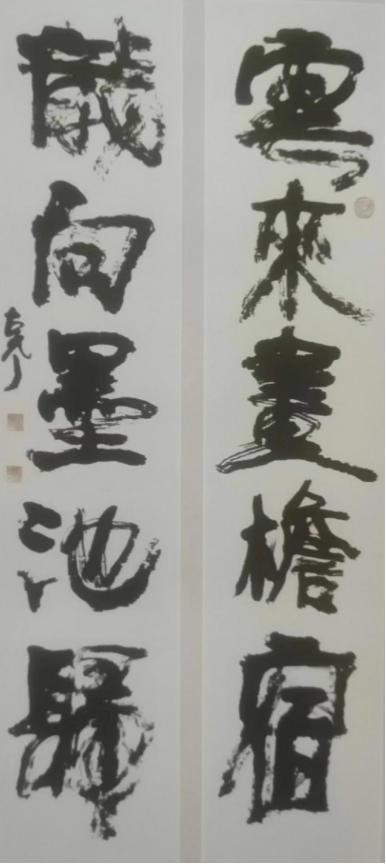 雲來畫檐宿
龍向墨池歸